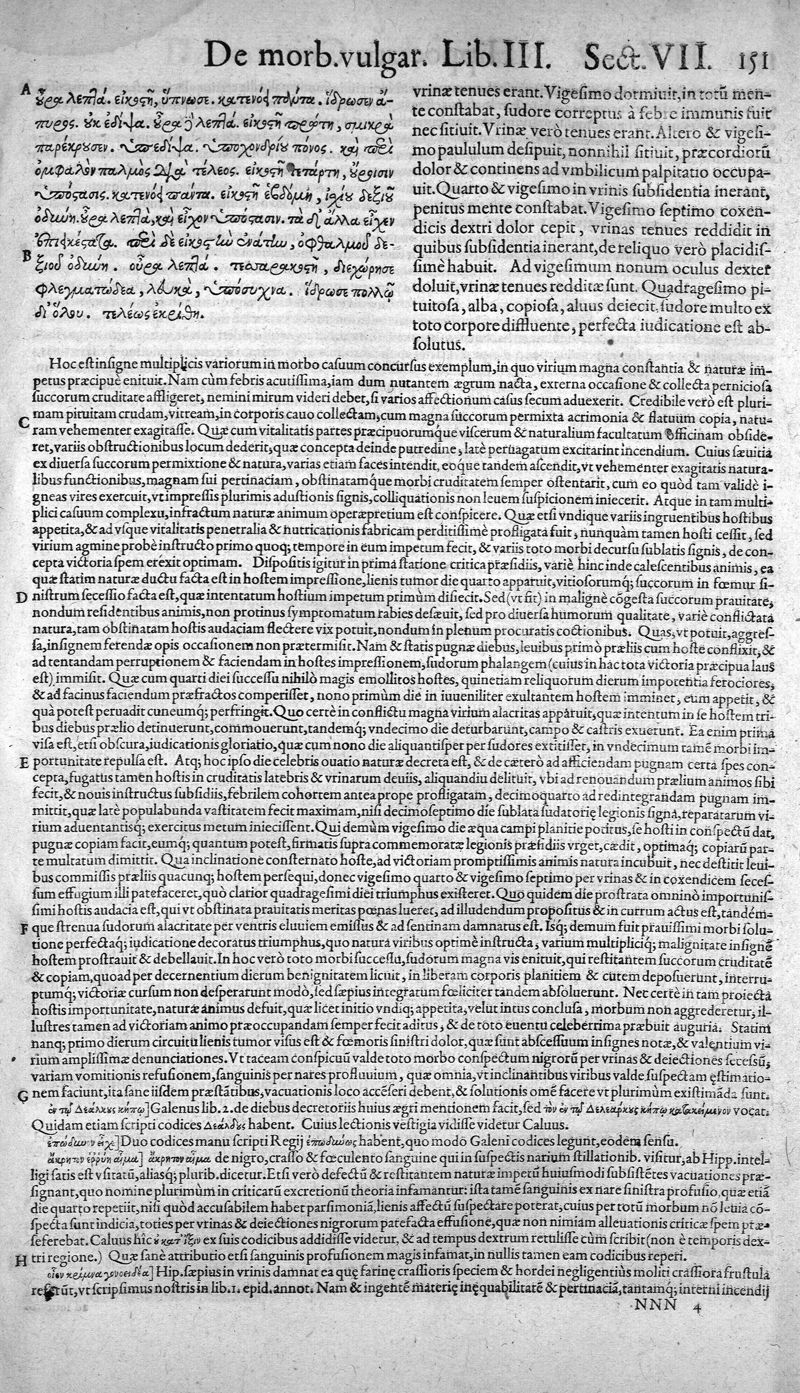 De morb. vulgar. Lib. III. Sect. VII. 151
A
B
vrinæ tenues erant. Vigesimo dormiuit, in totū men-
te constabat, sudore correptus à febre immunis fuit
nec sitiuit. Vrinæ verò tenues erant. Altero & vigesi-
mo paululum desipuit, nonnihil sitiuit, præcordiorū
dolor & continens ad vmbilicum palpitatio occupa-
uit. Quarto & vigesimo in vrinis subsidentia inerant,
penitus mente constabat. Vigesimo septimo coxen-
dicis dextri dolor cepit, vrinas tenues reddidit in
quibus subsidentia inerant, de reliquo verò placidis-
simè habuit. Ad vigesimum nonum oculus dexter
doluit, vrinæ tenues redditæ sunt. Quadragesimo pi-
tuitosa, alba, copiosa, aluus deiecit, sudore multo ex
toto corpore diffluente, perfecta iudicatione est ab-
solutus.
Hoc est insigne multiplicis variorum in morbo casuum concursus exemplum, in quo virium magna constantia & naturæ im-
petus præcipuè enituit. Nam cùm febris acutissima, iam dum nutantem ægrum nacta, externa occasione & collecta perniciosa
succorum cruditate affligeret, nemini mirum videri debet, si varios affectionum casus secum aduexerit. Credibile verò est pluri-
C mam pituitam crudam, vitream, in corporis cauo collectam, cum magna succorum permixta acrimonia & flatuum copia, natu-
ram vehementer exagitasse. Quæ cum vitalitatis partes præcipuorumque viscerum & naturalium facultatum officinam obside-
ret, variis obstructionibus locum dederit, quæ concepta deinde putredine, latè peruagatum excitarint incendium. Cuius sæuitia
ex diuersa succorum permixtione & natura, varias etiam faces intendit, eoque tandem ascendit, vt vehementer exagitatis natura-
libus functionibus, magnam sui pertinaciam, obstinatamque morbi cruditatem semper ostentarit, cum eo quòd tam validè i-
gneas vires exercuit, vt impressis plurimis adustionis signis, colliquationis non leuem suspicionem iniecerit. Atque in tam multi-
plici casuum complexu, infractum naturæ animum operæpretium est conspicere. Quæ etsi vndique variis ingruentibus hostibus
appetita, & ad vsque vitalitatis penetralia & nutricationis fabricam perditissimè profligata fuit, nunquàm tamen hosti cessit, sed
virium agmine probè instructo primo quoq; tempore in eum impetum fecit, & variis toto morbi decursu sublatis signis, de con-
cepta victoria spem erexit optimam. Dispositis igitur in prima statione critica præsidiis, variè hinc inde calescentibus animis, ea
quæ statim naturæ ductu facta est in hostem impressione, lienis tumor die quarto apparuit, vitiosorumq; succorum in fœmur si-
D nistrum secessio facta est, quæ intentatum hostium impetum primùm disiecit. Sed (vt fit) in malignè cōgesta succorum prauitate,
nondum residentibus animis, non protinus symptomatum rabies desæuit, sed pro diuersa humorum qualitate, variè conflictata
natura, tam obstinatam hostis audaciam flectere vix potuit, nondum in plenum procuratis coctionibus. Quas, vt potuit, aggres-
sa, insignem ferendæ opis occasionem non prætermisit. Nam & statis pugnæ diebus, leuibus primò præliis cum hoste conflixit, &
ad tentandam perruptionem & faciendam in hostes impressionem, sudorum phalangem (cuius in hac tota victoria præcipua laus
est) immisit. Quæ cum quarti diei successu nihilò magis emollitos hostes, quinetiam reliquorum dierum impotentia ferociores,
& ad facinus faciendum præfractos comperisset, nono primùm die in iuueniliter exultantem hostem imminet, eum appetit, &
quà potest peruadit cuneumq; perfringit. Quo certè in conflictu magna virium alacritas apparuit, quæ intentum in se hostem tri-
bus diebus prælio detinuerunt, commouerunt, tandemq; vndecimo die deturbarunt, campo & castris exuerunt. Ea enim prima
visa est, etsi obscura, iudicationis gloriatio, quæ cum nono die aliquantisper per sudores extitisset, in vndecimum tamē morbi im-
E portunitate repulsa est. Atq; hoc ipso die celebris ouatio naturæ decreta est, & de cæterò ad afficiendam pugnam certa spes con-
cepta, fugatus tamen hostis in cruditatis latebris & vrinarum deuiis, aliquandiu delituit, vbi ad renouandum prælium animos sibi
fecit, & nouis instructus subsidiis, febrilem cohortem antea prope profligatam, decimoquarto ad redintegrandam pugnam im-
mittit, quæ latè populabunda vastitatem fecit maximam, nisi decimoseptimo die sublata sudatoriæ legionis signa, reparatarum vi-
rium aduentantisq; exercitus metum iniecissent. Qui demùm vigesimo die æqua campi planitie potitus, se hosti in conspectū dat,
pugnæ copiam facit, eumq; quantum potest, firmatis supra commemoratæ legionis præsidiis vrget, cædit, optimaq; copiarū par-
te multatum dimittit. Qua inclinatione consternato hoste, ad victoriam promptissimis animis natura incubuit, nec destitit leui-
bus commissis præliis quacunq; hostem persequi, donec vigesimo quarto & vigesimo septimo per vrinas & in coxendicem seces-
sum effugium illi patefaceret, quò clarior quadragesimi diei triumphus existeret. Quo quidem die prostrata omninò importunis-
simi hostis audacia est, qui vt obstinatæ prauitatis meritas pœnas lueret, ad illudendum propositus & in currum actus est, tandém-
F que strenua sudorum alacritate per ventris eluuiem emissus & ad sentinam damnatus est. Isq; demum fuit prauissimi morbi solu-
tione perfectaq; iudicatione decoratus triumphus, quo natura viribus optimè instructa, varium multipliciq; malignitate insignē
hostem prostrauit & debellauit. In hoc verò toto morbi successu, sudorum magna vis enituit, qui restitantem succorum cruditatē
& copiam, quoad per decernentium dierum benignitatem licuit, in liberam corporis planitiem & cutem deposuerunt, interru-
ptumq; victoriæ cursum non desperarunt modò, sed sæpius integratum fœliciter tandem absoluerunt. Nec certè in tam proiecta
hostis importunitate, naturæ animus defuit, quæ licet initio vndiq; appetita, velut intus conclusa, morbum non aggrederetur, il-
lustres tamen ad victoriam animo præoccupandam semper fecit aditus, & de toto euentu celeberrima præbuit auguria. Statim
nanq; primo dierum circuitu lienis tumor visus est & fœmoris sinistri dolor, quæ sunt abscessuum insignes notæ, & valentium vi-
rium amplissimæ denunciationes. Vt taceam conspicuū valde toto morbo conspectum nigrorū per vrinas & deiectiones secessū,
variam vomitionis refusionem, sanguinis per nares profluuium, quæ omnia, vt inclinantibus viribus valde suspectam ęstimatio-
G nem faciunt, ita sane iisdem præstātibus, vacuationis loco accēseri debent, & solutionis omē facere vt plurimùm existimāda sunt.
Galenus lib. 2. de diebus decretoriis huius ægri mentionem facit, sed vocat.
Quidam etiam scripti codices habent. Cuius lectionis vestigia vidisse videtur Caluus.
Duo codices manu scripti Regij habent, quo modo Galeni codices legunt, eodem sensu.
de nigro, crasso & fœculento sanguine qui in suspectis narium stillationib. visitur, ab Hipp. intel-
ligi satis est vsitatū, aliasq; plurib. dicetur. Etsi verò defectū & restitantem naturæ impetū huiusmodi subsistētes vacuationes præ-
signant, quo nomine plurimùm in criticarū excretionū theoria infamantur: ista tamē sanguinis ex nare sinistra profusio, quæ etiā
die quarto repetiit, nisi quòd accusabilem habet parsimoniā, lienis affectū suspectare poterat, cuius per totū morbum nō leuia cō-
specta sunt indicia, toties per vrinas & deiectiones nigrorum patefacta effusione, quæ non nimiam alleuationis criticæ spem præ-
seferebat. Caluus hîc ex suis codicibus addidisse videtur, & ad tempus dextrum retulisse cùm scribit (non è temporis dex-
H tri regione.) Quæ sanè attributio etsi sanguinis profusionem magis infamat, in nullis tamen eam codicibus reperi.
Hip. sæpius in vrinis damnat ea quę farinę crassioris speciem & hordei negligentiùs moliti crassiora frustula
referūt, vt scripsimus nostris in lib. 1. epid. annot. Nam & ingentē materię inęquabilitatē & pertinaciā, tantamq; interni incendij
NNN 4